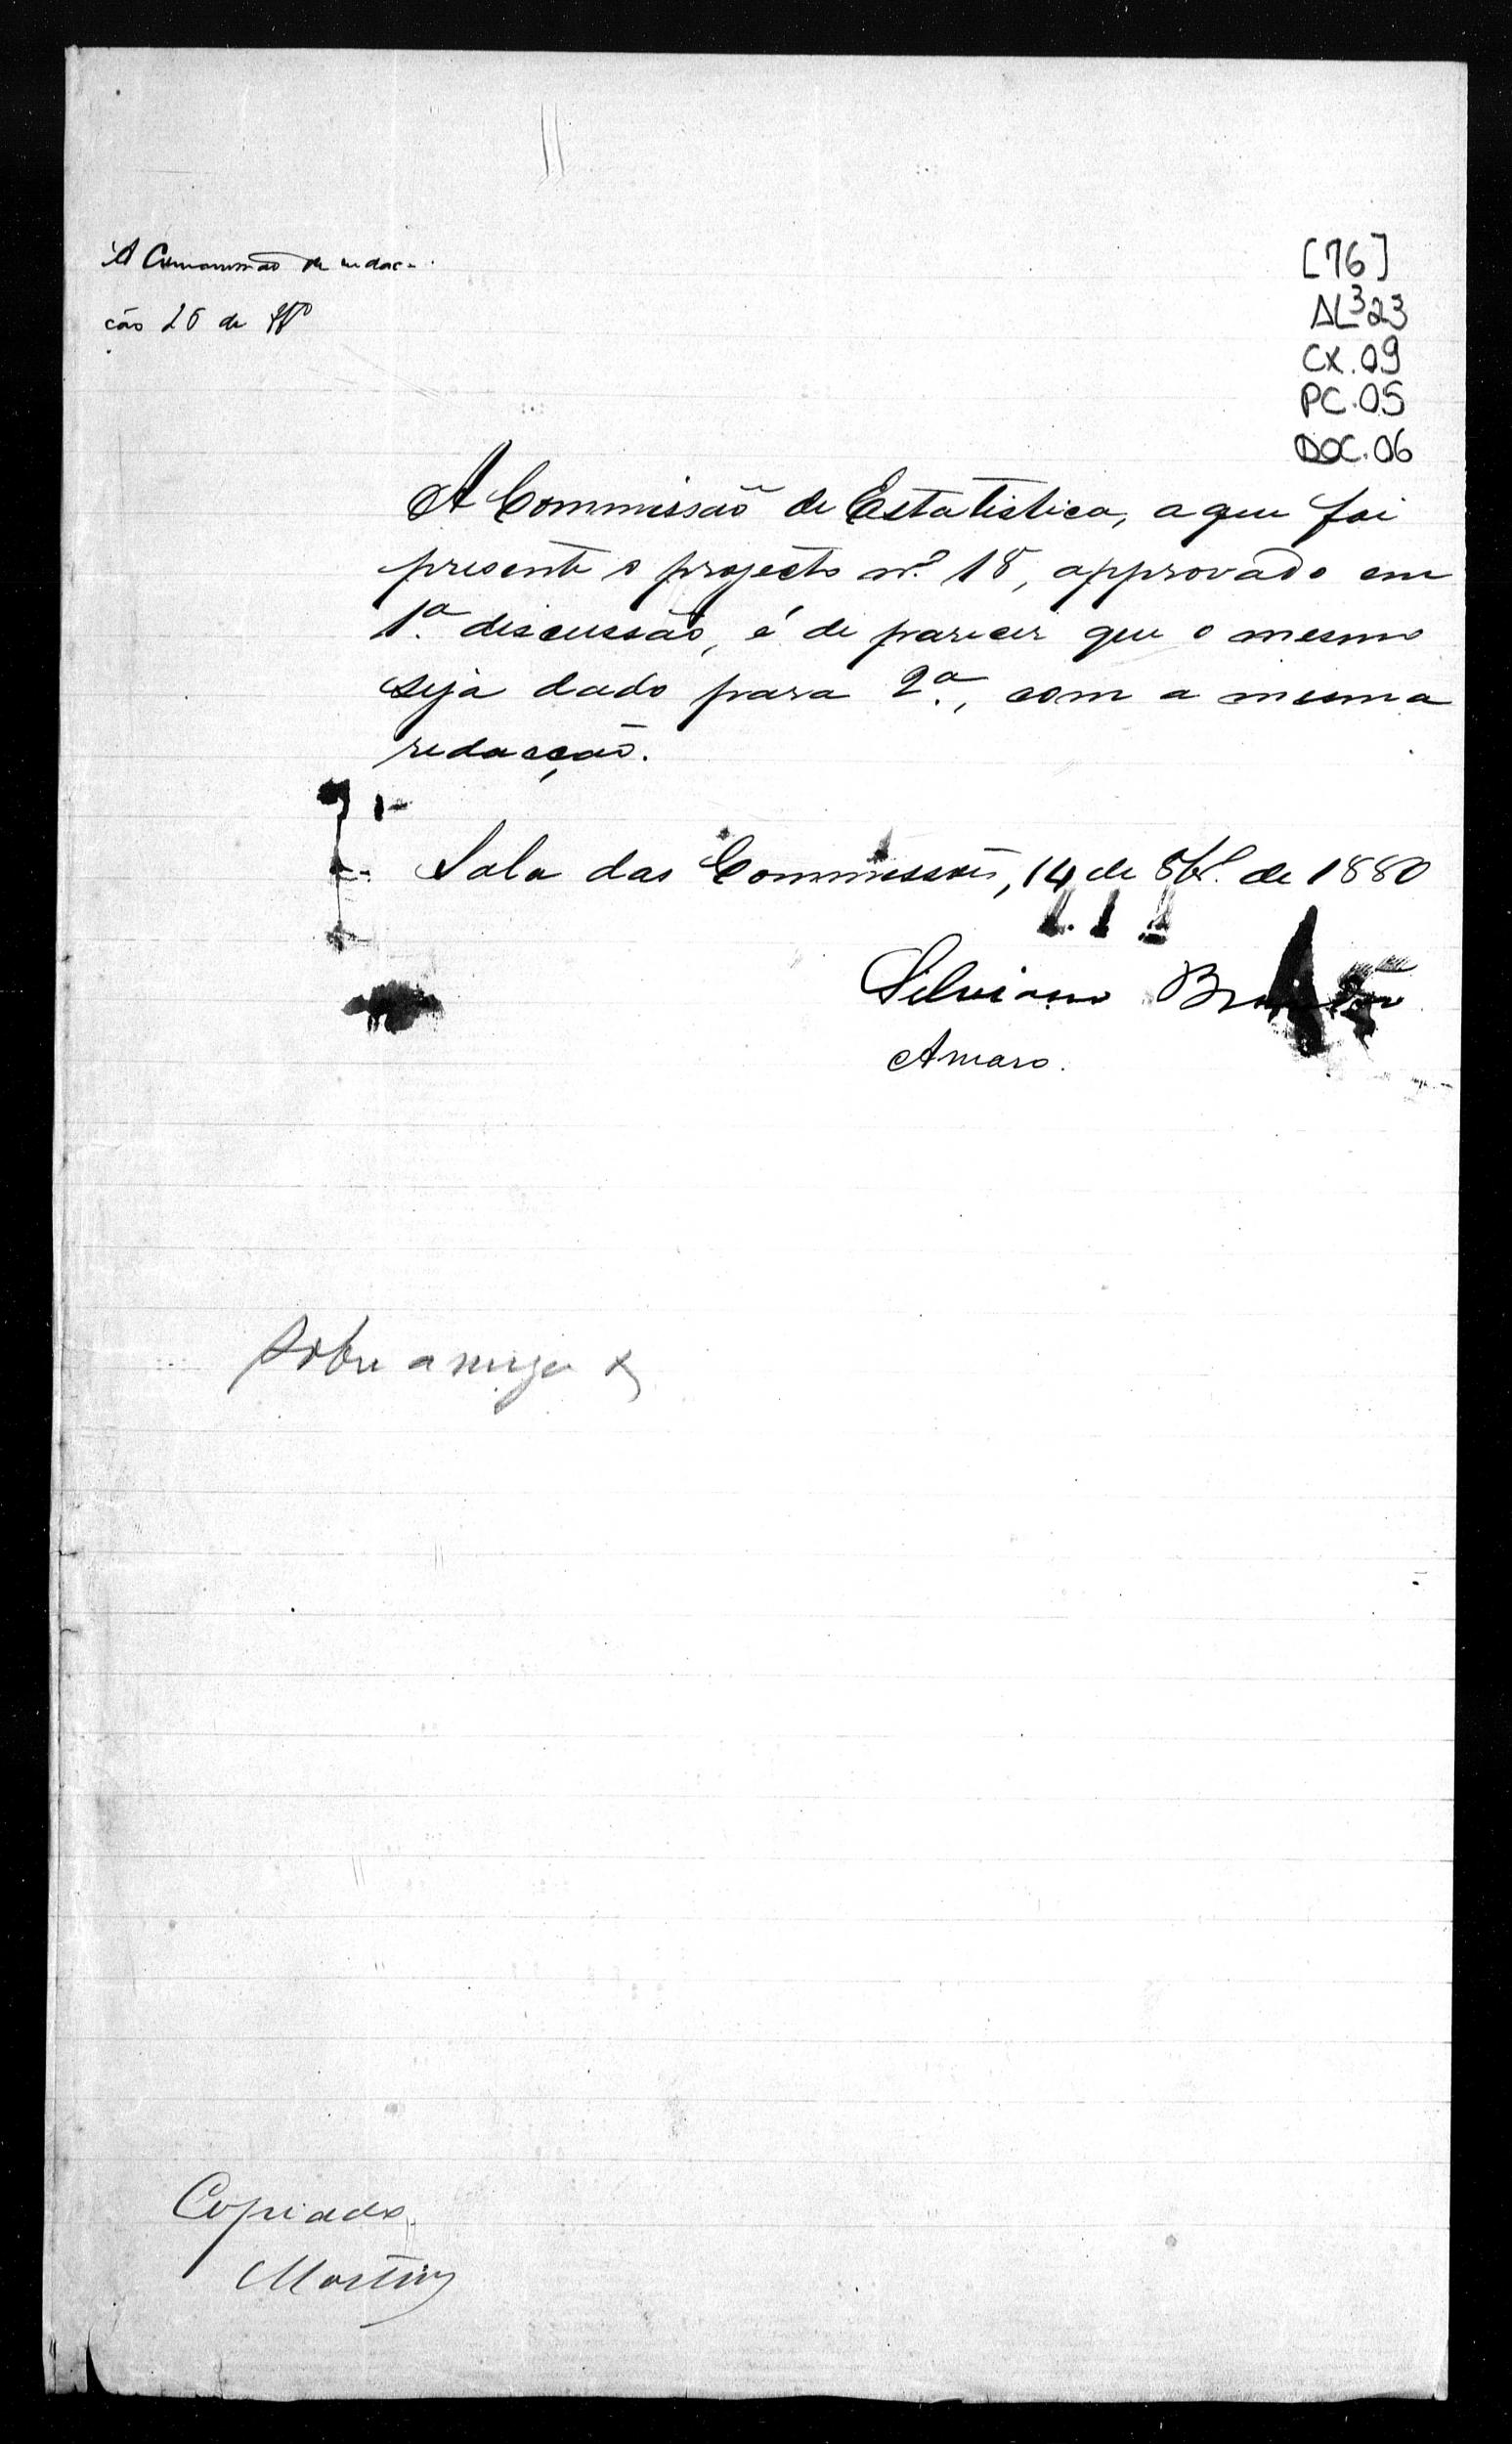 Á Commissão de redac-
ção 26 de
[76]
AL³23
CX.09
PC.05
DOC.06
A Commissão de Estatistica, a que foi
presente o projecto nº. 18, approvado em
1ª. discussão, é de parecer que o mesmo
seja dado para 2ª., com a mesma
redacção.
Sala das Commissões, 14 de 8brº. de 1880
Silviano Brandão
Amaro.
Sobre a mesa
Copiado.
Martins